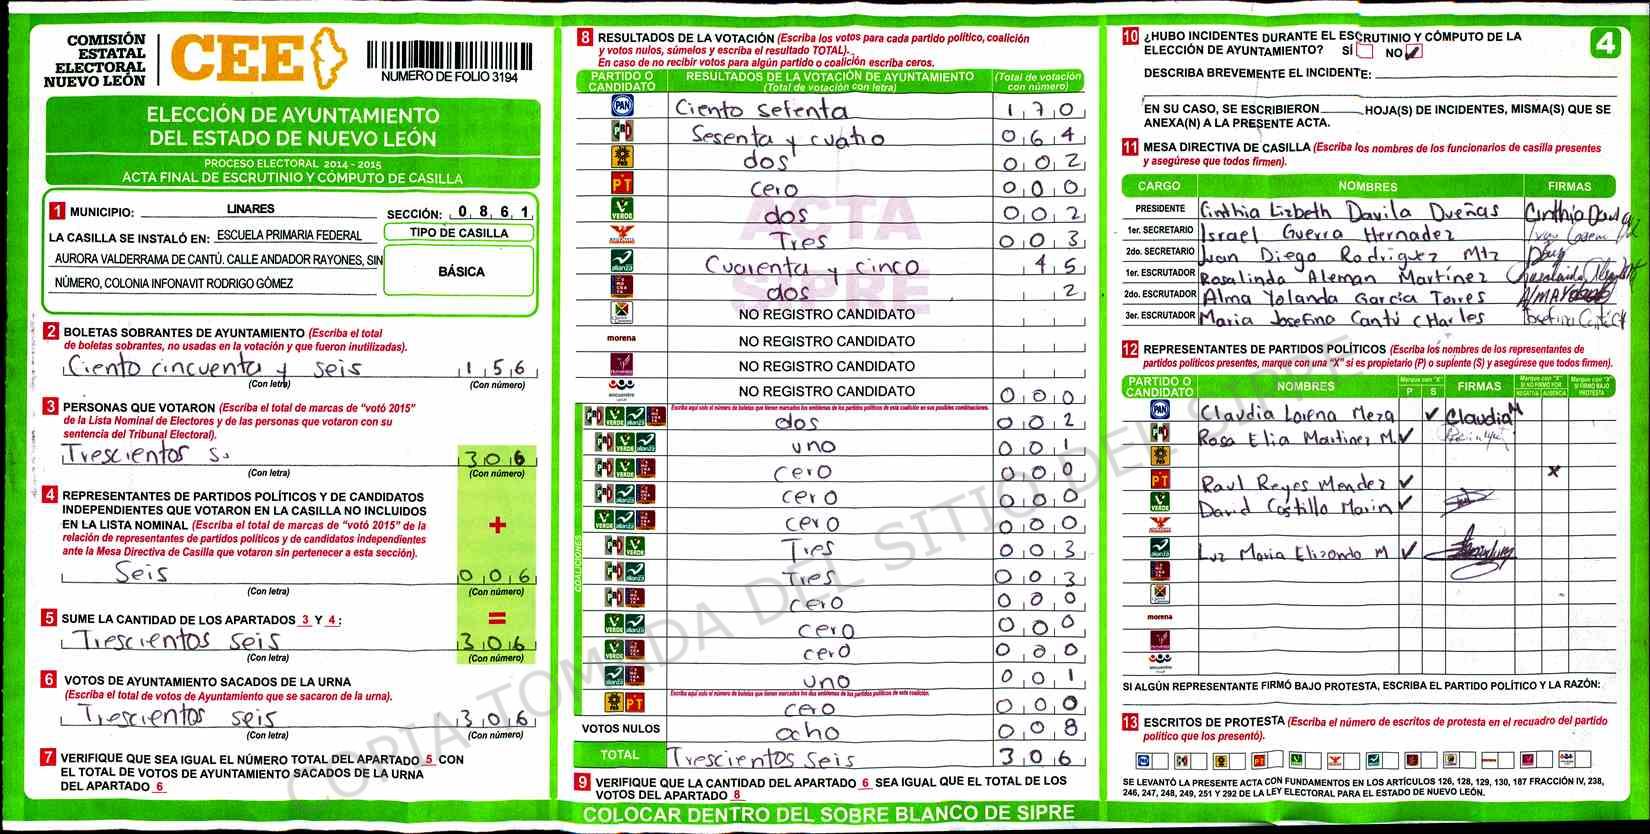 COMISIÓN
ESTATAL
ELECTORAL
NUEVO LEÓN
CEE
NUMERO DE FOLIO 3194
ELECCIÓN DE AYUNTAMIENTO
DEL ESTADO DE NUEVO LEÓN
PROCESO ELECTORAL 2014 - 2015
ACTA FINAL DE ESCRUTINIO Y CÓMPUTO DE CASILLA
1 MUNICIPIO: LINARES SECCIÓN: 0 8 6 1
LA CASILLA SE INSTALÓ EN: ESCUELA PRIMARIA FEDERAL
AURORA VALDERRAMA DE CANTÚ. CALLE ANDADOR RAYONES, SIN
NÚMERO, COLONIA INFONAVIT RODRIGO GÓMEZ
TIPO DE CASILLA
BÁSICA
2 BOLETAS SOBRANTES DE AYUNTAMIENTO (Escriba el total
de boletas sobrantes, no usadas en la votación y que fueron inutilizadas).
Ciento cincuenta y seis 1 5 6
(Con letra) (Con número)
3 PERSONAS QUE VOTARON (Escriba el total de marcas de "votó 2015"
de la Lista Nominal de Electores y de las personas que votaron con su
sentencia del Tribunal Electoral).
Trescientos s. 3 0 6
(Con letra) (Con número)
4 REPRESENTANTES DE PARTIDOS POLÍTICOS Y DE CANDIDATOS
INDEPENDIENTES QUE VOTARON EN LA CASILLA NO INCLUIDOS
EN LA LISTA NOMINAL (Escriba el total de marcas de "votó 2015" de la
relación de representantes de partidos políticos y de candidatos independientes
ante la Mesa Directiva de Casilla que votaron sin pertenecer a esta sección).
+
Seis 0 0 6
(Con letra) (Con número)
5 SUME LA CANTIDAD DE LOS APARTADOS 3 Y 4:
=
Trescientos seis 3 0 6
(Con letra) (Con número)
6 VOTOS DE AYUNTAMIENTO SACADOS DE LA URNA
(Escriba el total de votos de Ayuntamiento que se sacaron de la urna).
Trescientos seis 3 0 6
(Con letra) (Con número)
7 VERIFIQUE QUE SEA IGUAL EL NÚMERO TOTAL DEL APARTADO 5 CON
EL TOTAL DE VOTOS DE AYUNTAMIENTO SACADOS DE LA URNA
DEL APARTADO 6
8 RESULTADOS DE LA VOTACIÓN (Escriba los votos para cada partido político, coalición
y votos nulos, súmelos y escriba el resultado TOTAL).
En caso de no recibir votos para algún partido o coalición escriba ceros.
PARTIDO O CANDIDATO RESULTADOS DE LA VOTACIÓN DE AYUNTAMIENTO (Total de votación con letra) (Total de votación con número)
PAN Ciento setenta 1 7 0
PRI Sesenta y cuatro 0 6 4
PRD dos 0 0 2
PT cero 0 0 0
VERDE dos 0 0 2
Tres 0 0 3
alianza Cuarenta y cinco 4 5
dos 2
NO REGISTRO CANDIDATO
morena NO REGISTRO CANDIDATO
NO REGISTRO CANDIDATO
encuentro NO REGISTRO CANDIDATO 0 0 0
ACTA
SIPRE
COALICIONES
Escriba aquí solo el número de boletas que tienen marcados los emblemas de los partidos políticos de esta coalición en sus posibles combinaciones.
dos 0 0 2
uno 0 0 1
cero 0 0 0
cero 0 0 0
cero 0 0 0
Tres 0 0 3
Tres 0 0 3
cero 0 0 0
cero 0 0 0
cero 0 0 0
uno 0 0 1
Escriba aquí solo el número de boletas que tienen marcados los dos emblemas de los partidos políticos de esta coalición.
PRD PT cero 0 0 0
VOTOS NULOS ocho 0 0 8
TOTAL Trescientos Seis 3 0 6
9 VERIFIQUE QUE LA CANTIDAD DEL APARTADO 6 SEA IGUAL QUE EL TOTAL DE LOS
VOTOS DEL APARTADO 8
COLOCAR DENTRO DEL SOBRE BLANCO DE SIPRE
10 ¿HUBO INCIDENTES DURANTE EL ESCRUTINIO Y CÓMPUTO DE LA
ELECCIÓN DE AYUNTAMIENTO? SÍ NO ✓
4
DESCRIBA BREVEMENTE EL INCIDENTE:
EN SU CASO, SE ESCRIBIERON HOJA(S) DE INCIDENTES, MISMA(S) QUE SE
ANEXA(N) A LA PRESENTE ACTA.
11 MESA DIRECTIVA DE CASILLA (Escriba los nombres de los funcionarios de casilla presentes
y asegúrese que todos firmen).
CARGO NOMBRES FIRMAS
PRESIDENTE Cinthia Lizbeth Davila Dueñas Cinthia
1er. SECRETARIO Israel Guerra Hernadez
2do. SECRETARIO Juan Diego Rodriguez Mtz
1er. ESCRUTADOR Rosalinda Aleman Martínez
2do. ESCRUTADOR Alma Yolanda Garcia Torres
3er. ESCRUTADOR Maria Josefina Cantú CHarles Josefina
12 REPRESENTANTES DE PARTIDOS POLÍTICOS (Escriba los nombres de los representantes de
partidos políticos presentes, marque con una "X" si es propietario (P) o suplente (S) y asegúrese que todos firmen).
PARTIDO O CANDIDATO NOMBRES Marque con "X" P S FIRMAS Marque con "X" SI NO FIRMÓ POR NEGATIVA AUSENCIA Marque con "X" SI FIRMÓ BAJO PROTESTA
PAN Claudia Lorena Meza ✓ Claudia M
PRI Rosa Elia Martinez M. ✓
PRD
PT Raul Reyes Mendez ✓ X
VERDE David Castillo Marin ✓
alianza Luz Maria Elizondo M ✓
morena
encuentro
SI ALGÚN REPRESENTANTE FIRMÓ BAJO PROTESTA, ESCRIBA EL PARTIDO POLÍTICO Y LA RAZÓN:
13 ESCRITOS DE PROTESTA (Escriba el número de escritos de protesta en el recuadro del partido
político que los presentó).
SE LEVANTÓ LA PRESENTE ACTA CON FUNDAMENTOS EN LOS ARTÍCULOS 126, 128, 129, 130, 187 FRACCIÓN IV, 238,
246, 247, 248, 249, 251 Y 292 DE LA LEY ELECTORAL PARA EL ESTADO DE NUEVO LEÓN.
COPIA TOMADA DEL SITIO DEL SIPRE